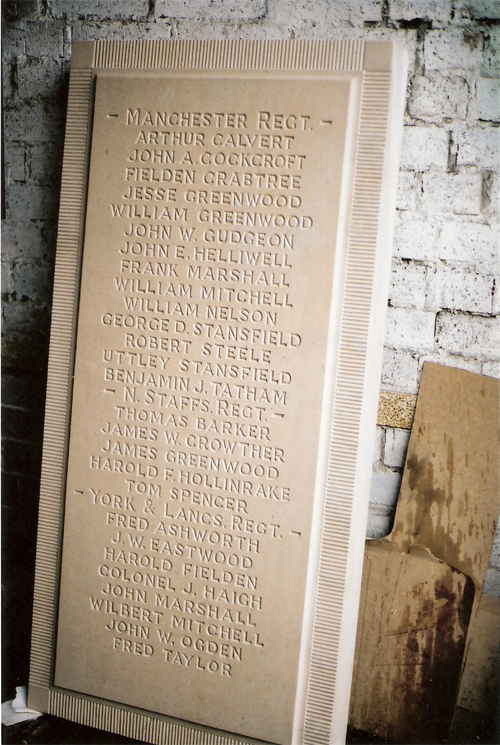 - MANCHESTER REGT. -
ARTHUR CALVERT
JOHN A. COCKCROFT
FIELDEN CRABTREE
JESSE GREENWOOD
WILLIAM GREENWOOD
JOHN W. GUDGEON
JOHN E. HELLIWELL
FRANK MARSHALL
WILLIAM MITCHELL
WILLIAM NELSON
GEORGE D. STANSFIELD
ROBERT STEELE
UTTLEY STANSFIELD
BENJAMIN J. TATHAM
- N. STAFFS. REGT. -
THOMAS BARKER
JAMES W. CROWTHER
JAMES GREENWOOD
HAROLD F. HOLLINRAKE
TOM SPENCER
- YORK & LANCS. REGT. -
FRED ASHWORTH
J. W. EASTWOOD
HAROLD FIELDEN
COLONEL J. HAIGH
JOHN MARSHALL
WILBERT MITCHELL
JOHN W. OGDEN
FRED TAYLOR